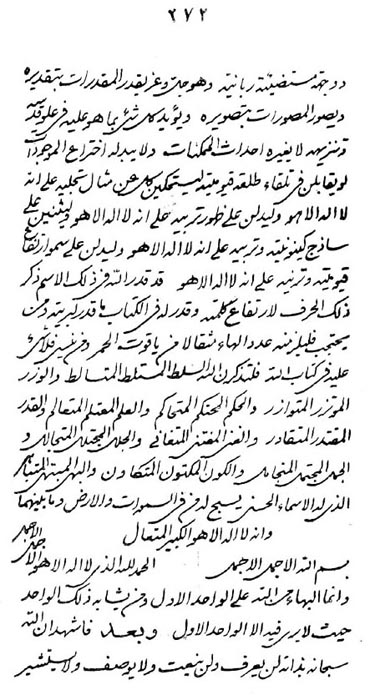 ٢٧٢
دوجهة مستضيئة ربانية وهو جل وعز يقدر المقدرات بتقديره
ويصور المصورات بتصويره ويؤيد كل شئ بما هو عليه في علو قدسه
وتنزيهه لا يغيره احداث الممكنات ولا يبدله اختراع الموجودات
لو يقابلن في تلقاء طلعة قيوميته ليستحكين كل عن مثال تجليه على انه
لا اله الا هو وليدلن على ظهور تربيه على انه لا اله الا هو وليثنين على
ساذج كينونيته وتربيه على انه لا اله الا هو وليدلن على سمو ارتفاع
قيوميته وترنيه على انه لا اله الا هو قد قدر الله في ذلك الاسم ذكر
ذلك الحرف لارتفاع كلمته وقدر له في الكتاب ما قدر لبريته ومن
يحتجب فليلزمنه عدد الهاء مثقالا من ياقوت الحمر ومن نسى فلا شئ
عليه في كتاب الله فلتذكرن الله السلط المستلط المتسالط والوزر
الموتزر المتوازر والحكم المحتكم المتحاكم والعلم المعتلم المتعالم والقدر
المقتدر المتقادر والغنى المغتنى المتغانى والجلل المجتلل المتجالل و
الجمل المجتمل المتجامل والكون المكتون المتكاون والبهى المبتهى المتباهى
الذي له الاسماء الحسنى يسبح له من في السموات والارض وما بينهما
وانه لا اله الا هو الكبير المتعال
بسم الله الاجمل الاجمل الحمد لله الذي لا اله الا هو الاجمل الاجمل
وانما البهاء من الله على الواحد الاول ومن يشابه ذلك الواحد
حيث لا يرى فيه الا الواحد الاول وبعد فاشهد ان الله
سبحانه بذاته لن يعرف ولن ينعت ولا يوصف ولا يستشير